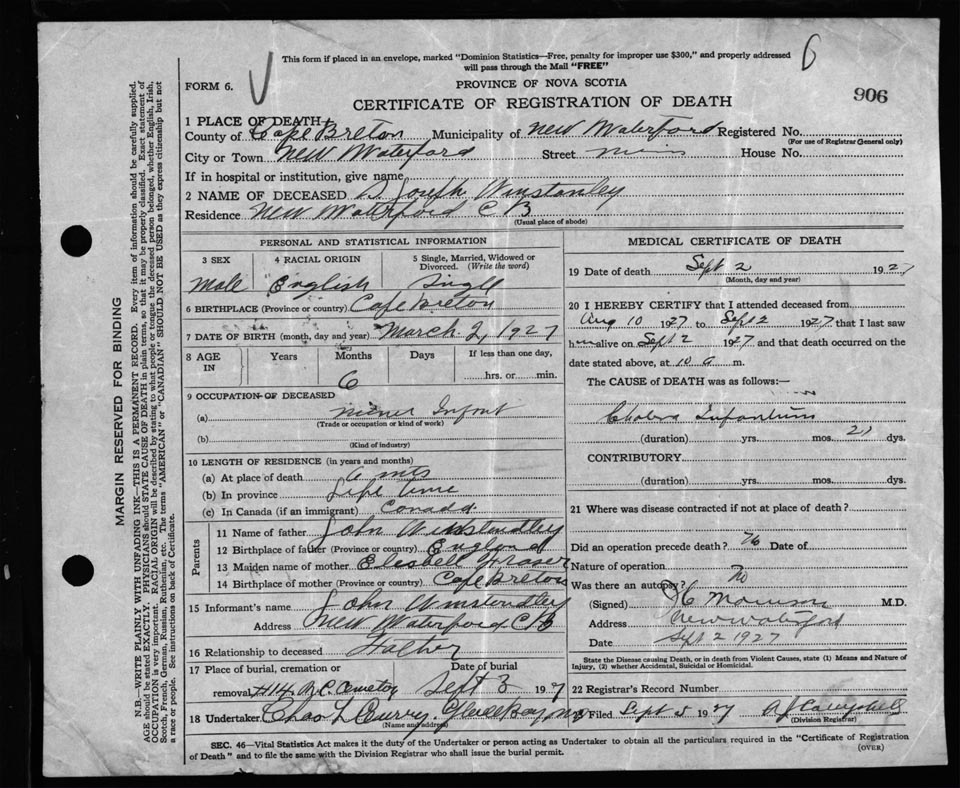 This form if placed in an envelope, marked "Dominion Statistics—Free, penalty for improper use $300," and properly addressed
will pass through the Mail "FREE"
6
FORM 6.
PROVINCE OF NOVA SCOTIA
CERTIFICATE OF REGISTRATION OF DEATH
906
1 PLACE OF DEATH
County of Cape Breton Municipality of New Waterford Registered No.
(For use of Registrar General only)
City or Town New Waterford Street House No.
If in hospital or institution, give name
2 NAME OF DECEASED Joseph Winstanley
Residence New Waterford CB
(Usual place of abode)
PERSONAL AND STATISTICAL INFORMATION
3 SEX 4 RACIAL ORIGIN 5 Single, Married, Widowed or
Divorced. (Write the word)
Male English Single
6 BIRTHPLACE (Province or country) Cape Breton
7 DATE OF BIRTH (month, day and year) March 2, 1927
8 AGE IN Years Months Days If less than one day,
6 hrs. or min.
9 OCCUPATION OF DECEASED
(a) Infant
(Trade or occupation or kind of work)
(b)
(Kind of industry)
10 LENGTH OF RESIDENCE (in years and months)
(a) At place of death 6 mts
(b) In province Life time
(c) In Canada (if an immigrant) Canada
Parents
11 Name of father John Winstandley
12 Birthplace of father (Province or country) England
13 Maiden name of mother
14 Birthplace of mother (Province or country) Cape Breton
15 Informant's name John Winstondley
Address New Waterford CB
16 Relationship to deceased Father
17 Place of burial, cremation or Date of burial
removal R.C. Cemetoy Sept 3 1927
18 Undertaker Chas L Curry Glace Bay NS
(Name and address)
MEDICAL CERTIFICATE OF DEATH
19 Date of death Sept 2 1927
(Month, day and year)
20 I HEREBY CERTIFY that I attended deceased from
Aug 10 1927 to Sept 2 1927 that I last saw
him alive on Sept 2 1927 and that death occurred on the
date stated above, at 10 a m.
The CAUSE of DEATH was as follows:—
Cholera Infantum
(duration) yrs. mos. 21 dys.
CONTRIBUTORY
(duration) yrs. mos. dys.
21 Where was disease contracted if not at place of death?
Did an operation precede death? No Date of
Nature of operation
Was there an autopsy? No
(Signed) Morrison M.D.
Address New Waterford
Date Sept 2 1927
State the Disease causing Death, or in death from Violent Causes, state (1) Means and Nature of
Injury, (2) whether Accidental, Suicidal or Homicidal.
22 Registrar's Record Number
Filed Sept 5 1927 A J Campbell
(Division Registrar)
SEC. 46—Vital Statistics Act makes it the duty of the Undertaker or person acting as Undertaker to obtain all the particulars required in the "Certificate of Registration
of Death" and to file the same with the Division Registrar who shall issue the burial permit.
(OVER)
MARGIN RESERVED FOR BINDING
N.B.—WRITE PLAINLY WITH UNFADING INK—THIS IS A PERMANENT RECORD. Every item of information should be carefully supplied.
AGE should be stated EXACTLY. PHYSICIANS should STATE CAUSE OF DEATH in plain terms, so that it may be properly classified. Exact statement of
OCCUPATION is very important. RACIAL ORIGIN will be described by stating to what people or tongue the deceased person belonged, whether English, Irish,
Scotch, French, German, Russian, Ruthenian, etc. The terms "AMERICAN" or "CANADIAN" SHOULD NOT BE USED as they express citizenship but not
a race or people. See instructions on back of Certificate.